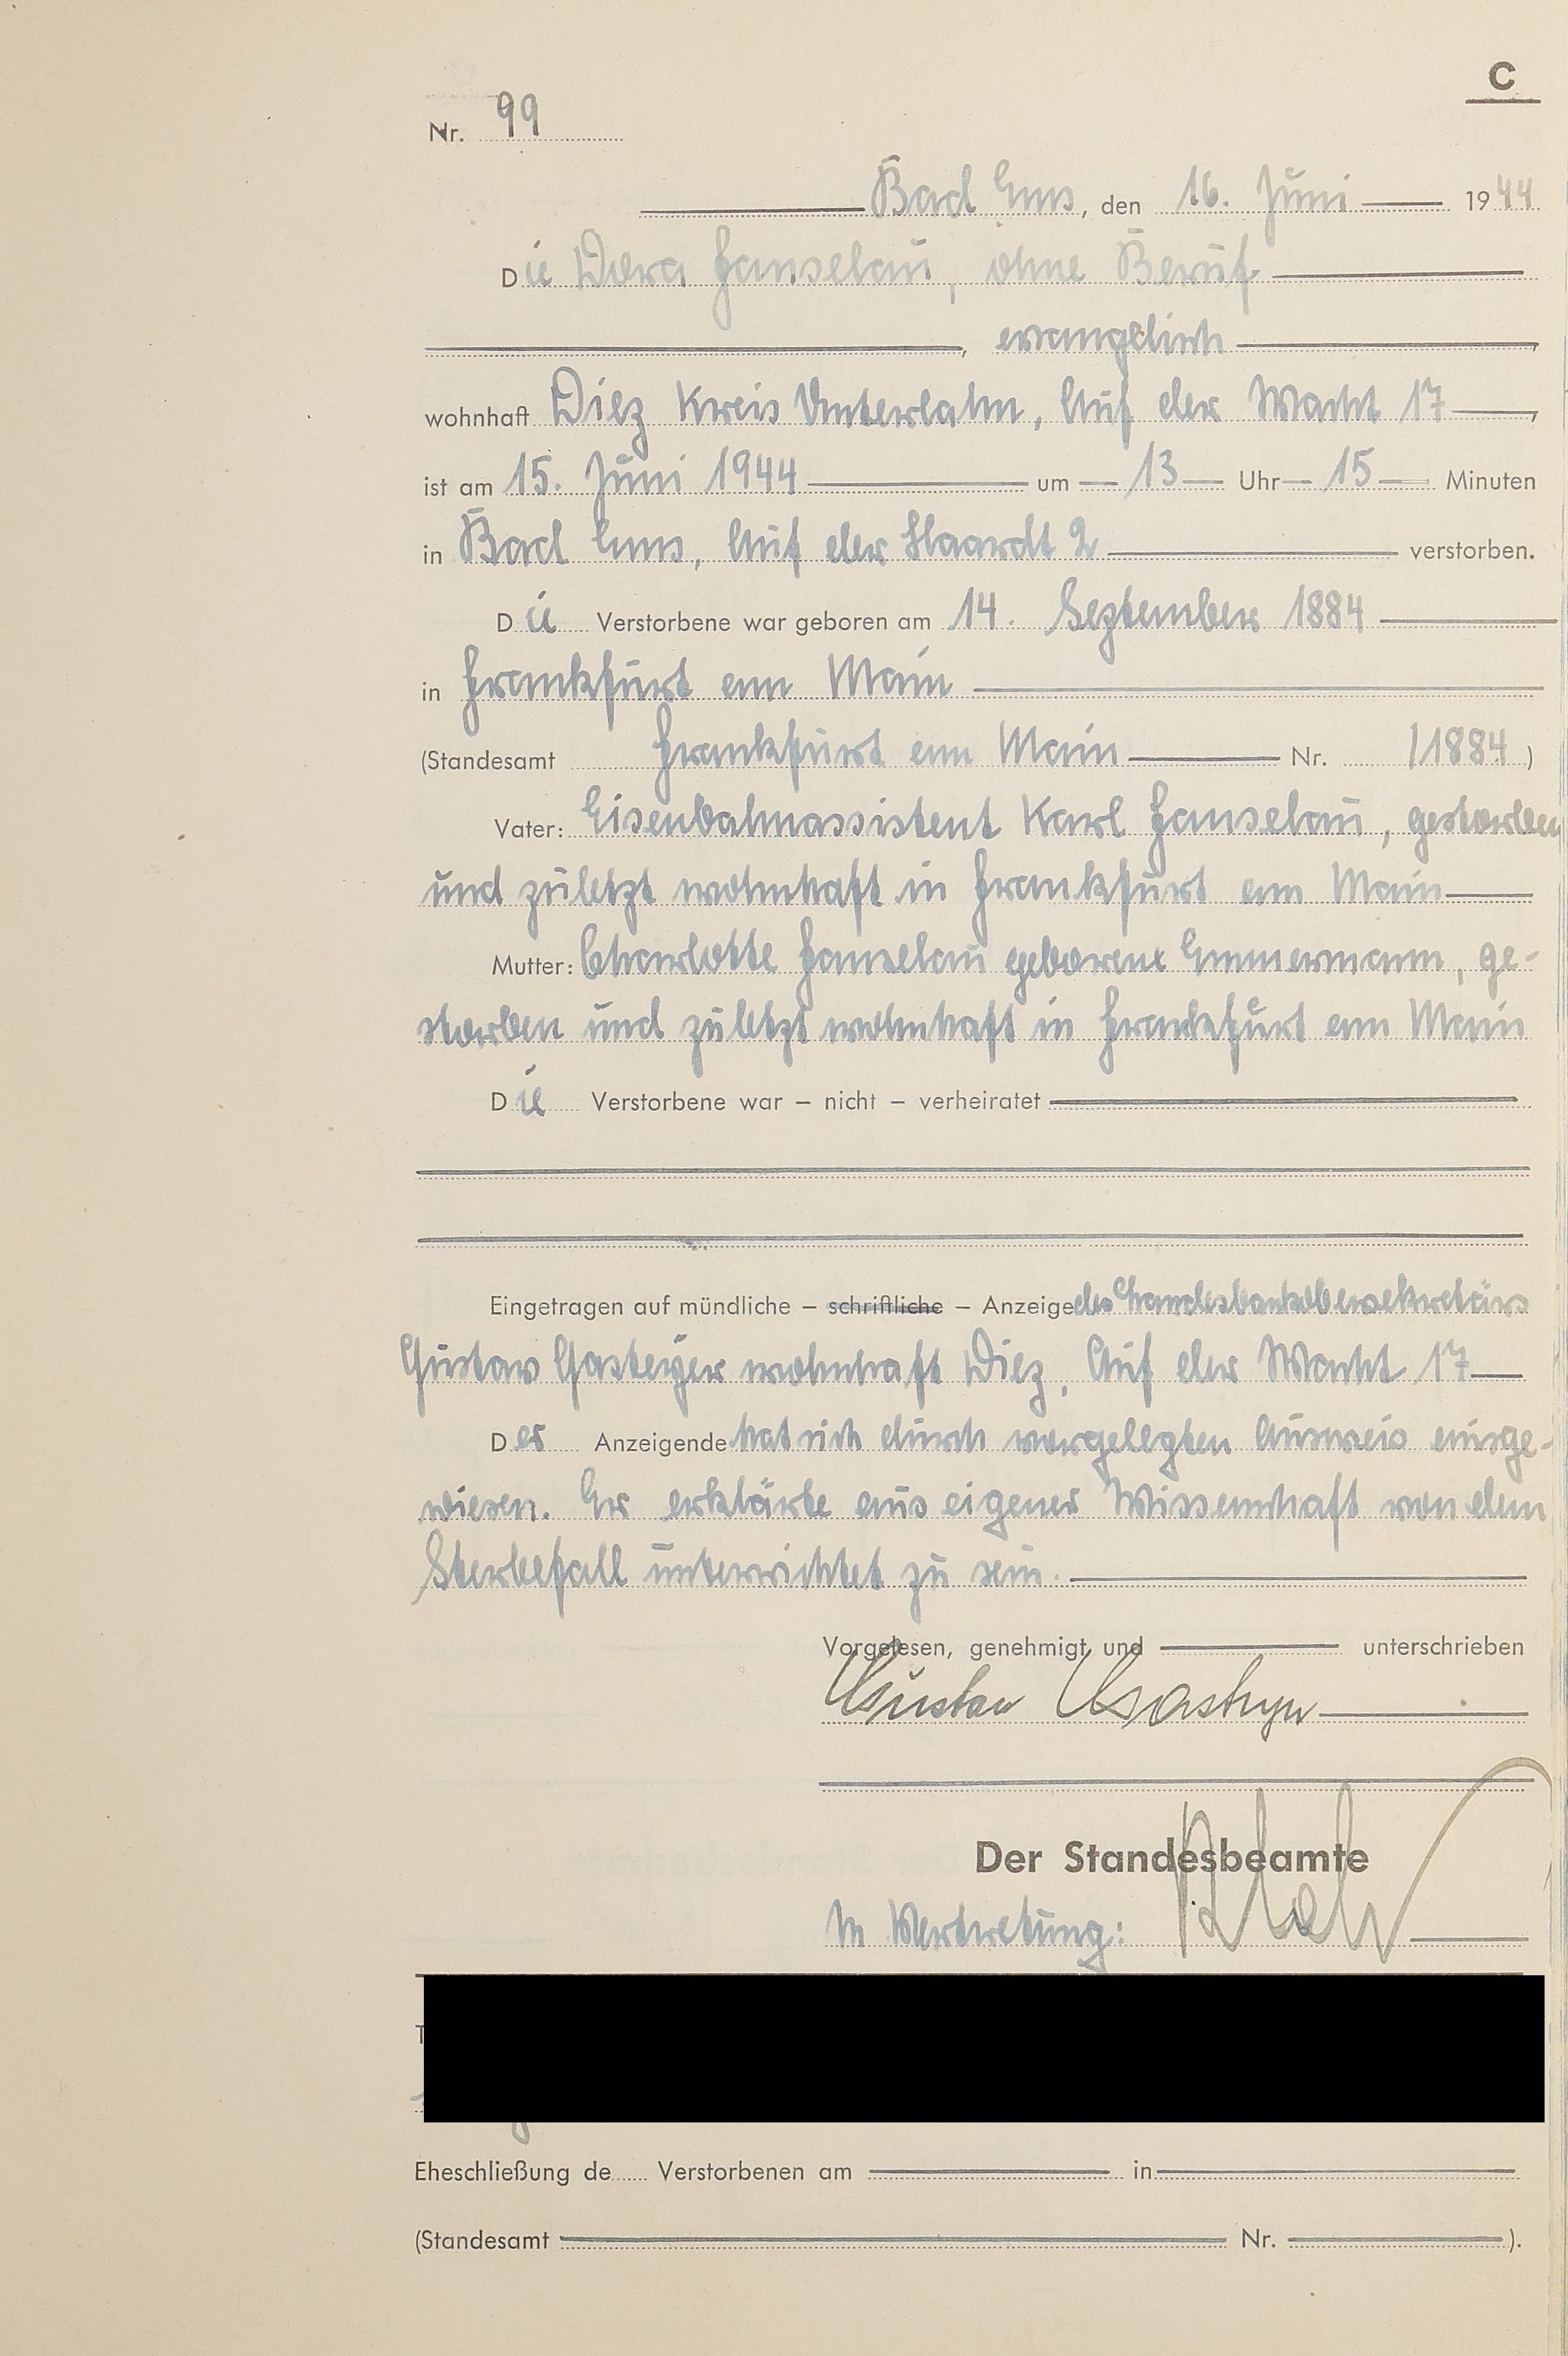 C
Nr. 99
Bad Ems, den 16. Juni 1944
Die Dora Hanselau, ohne Beruf
, evangelisch,
wohnhaft Diez Kreis Unterlahn, Auf der Wacht 17,
ist am 15. Juni 1944 um 13 Uhr 15 Minuten
in Bad Ems, Auf der Haardt 2 verstorben.
Die Verstorbene war geboren am 14. September 1884
in Frankfurt am Main
(Standesamt Frankfurt am Main Nr. /1884)
Vater: Eisenbahnassistent Karl Hanselau, gestorben
und zuletzt wohnhaft in Frankfurt am Main
Mutter: Charlotte Hanselau geborene Emmermann, ge-
storben und zuletzt wohnhaft in Frankfurt am Main
Die Verstorbene war – nicht – verheiratet
Eingetragen auf mündliche – schriftliche – Anzeige des Landesbankobersekretärs
Gustav Gasteyer wohnhaft Diez, Auf der Wacht 17
Der Anzeigende hat sich durch vorgelegten Ausweis ausge-
wiesen. Er erklärte aus eigener Wissenschaft von dem
Sterbefall unterrichtet zu sein.
Vorgelesen, genehmigt und unterschrieben
Gustav Gasteyer
Der Standesbeamte
In Vertretung:
Eheschließung de Verstorbenen am in
(Standesamt Nr. ).